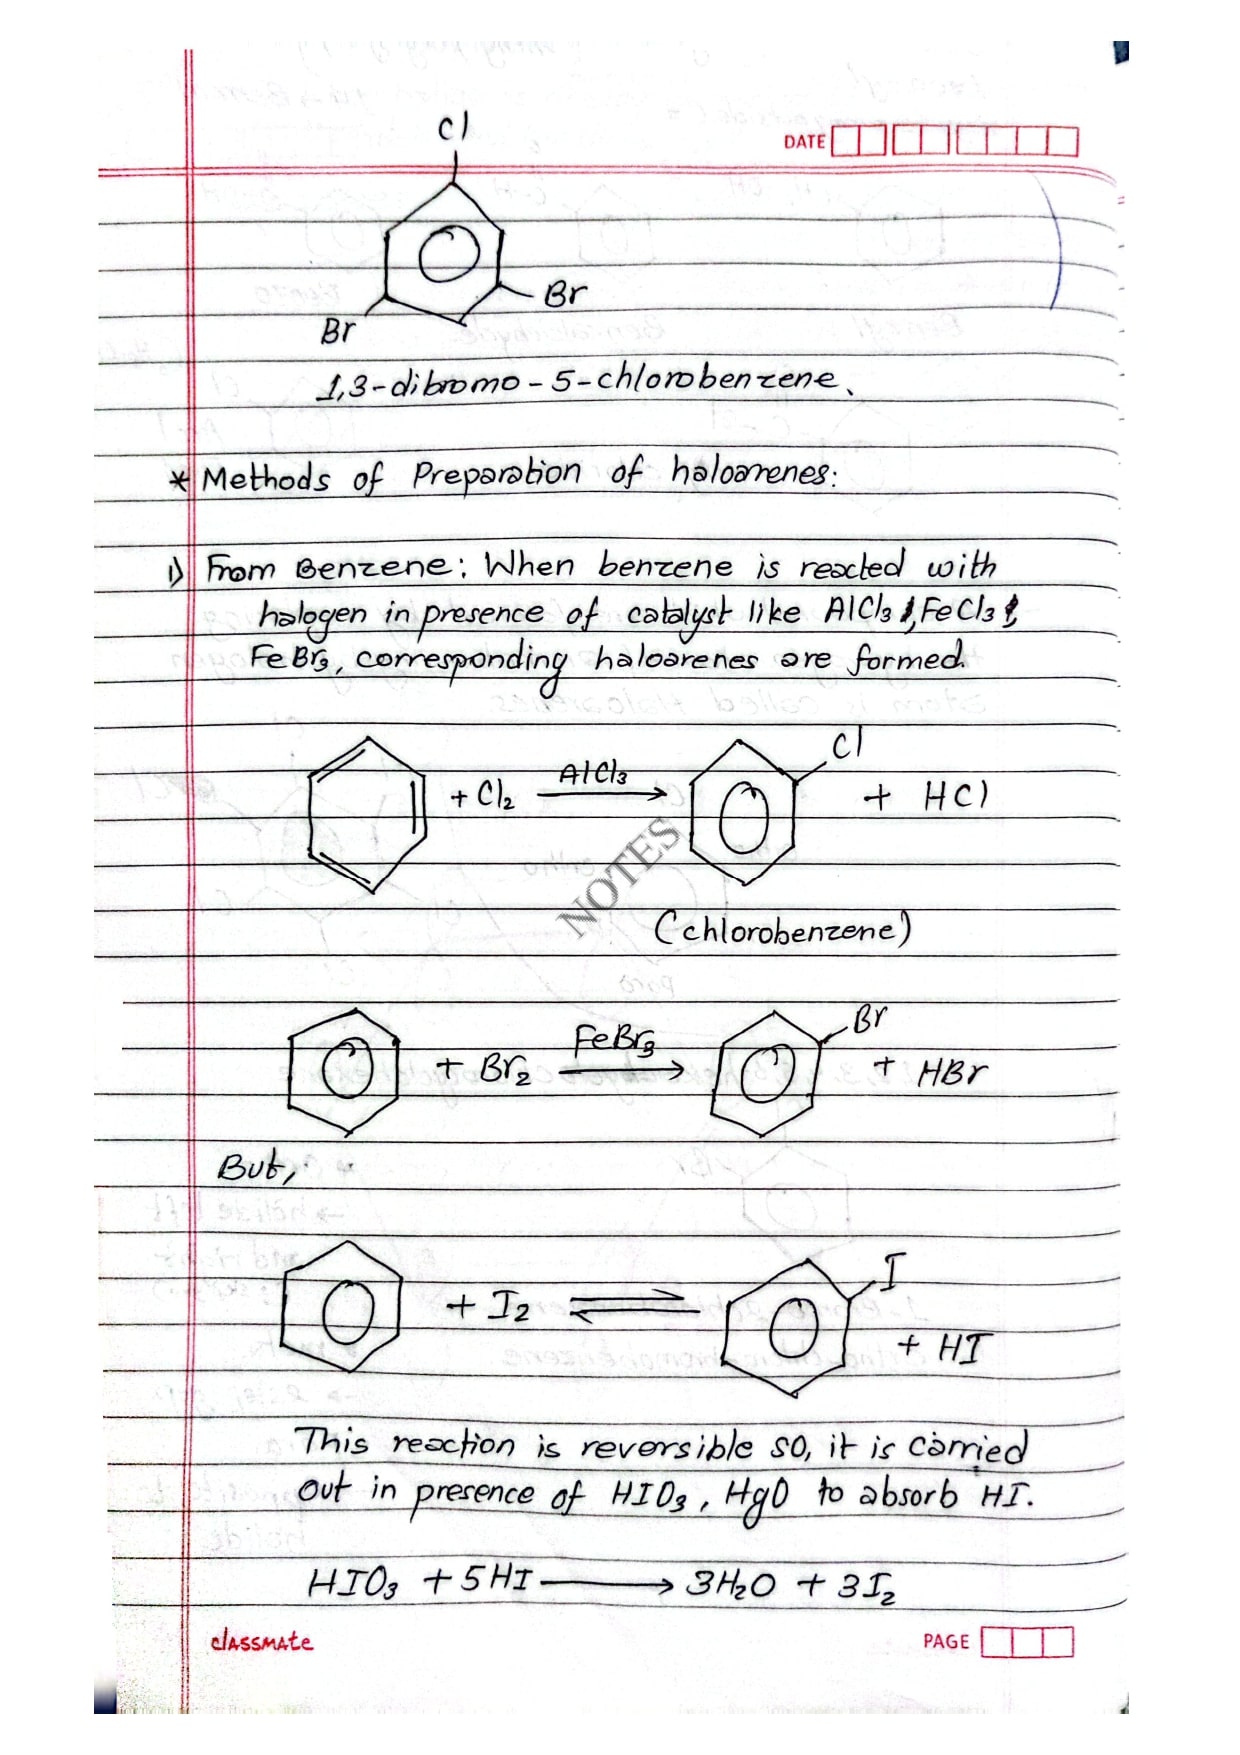 Cl
DATE
Br
Br
1,3-dibromo-5-chlorobenzene.
* Methods of Preparation of haloarenes:
1) From Benzene: When benzene is reacted with
halogen in presence of catalyst like AlCl3, FeCl3,
FeBr3, corresponding haloarenes are formed.
+ Cl2 AlCl3 → Cl + HCl
NOTES
(chlorobenzene)
+ Br2 FeBr3 → Br + HBr
But,
+ I2 ⇌ I + HI
This reaction is reversible so, it is carried
out in presence of HIO3, HgO to absorb HI.
HIO3 + 5HI → 3H2O + 3I2
classmate
PAGE